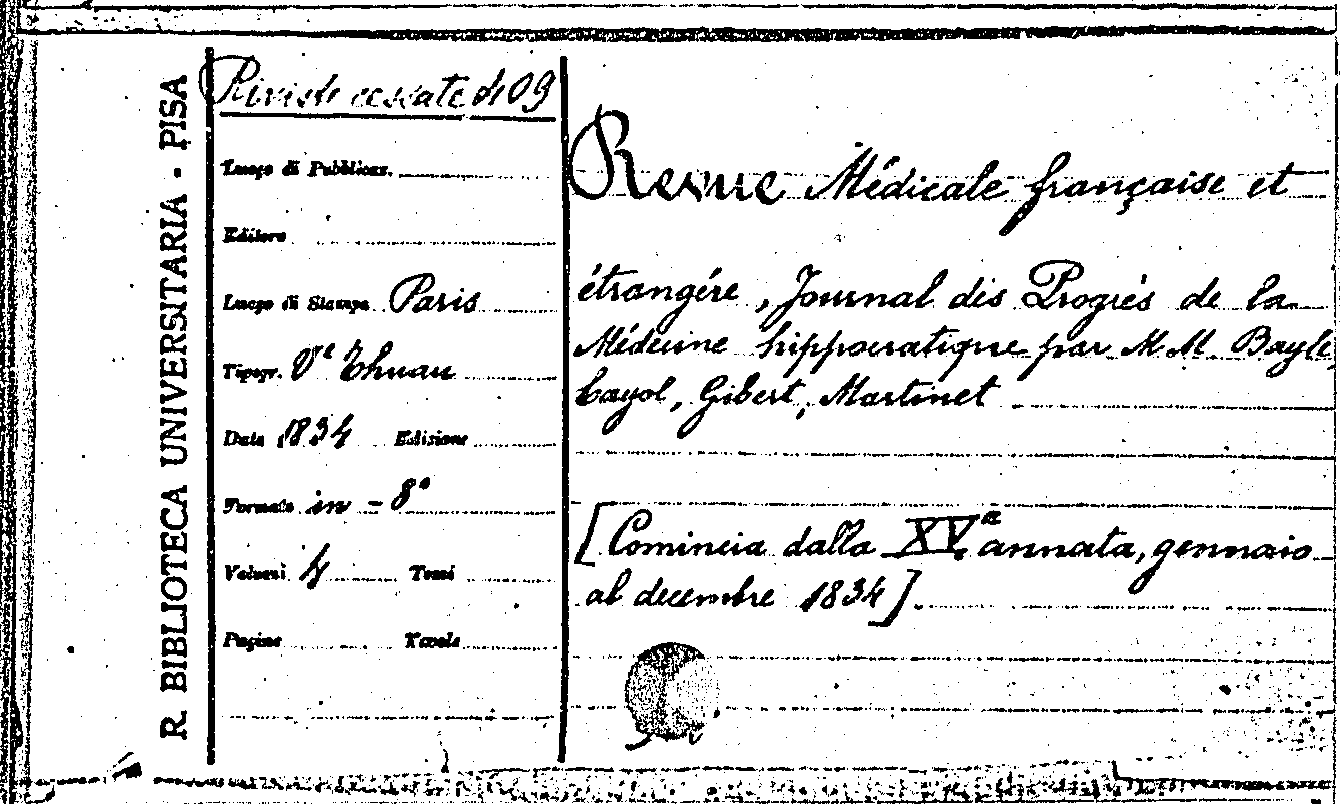 R. BIBLIOTECA UNIVERSITARIA - PISA
Riviste cessate di 09
Luogo di Pubblicaz.
Editore
Luogo di Stampa Paris
Tipogr. Vᵉ Thuau
Data 1834 Edizione
Formato in - 8°
Volumi 4 Tomi
Pagine Tavole
Revue Médicale française et
étrangére, Journal des Progrés de la
Médecine hippocratique par M.M. Bayle,
Cayol, Gibert, Martinet
[Comincia dalla XVª annata, gennaio
al decembre 1834].